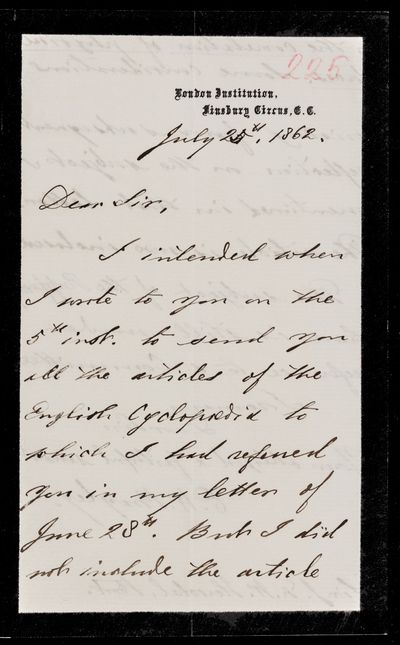 225
London Institution,
Finsbury Circus, E.C.
July 25th, 1862.
Dear Sir,
I intended when
I wrote to you on the
5th inst. to send you
all the articles of the
English Cyclopædia to
which I had referred
you in my letter of
June 28th. But I did
not include the article